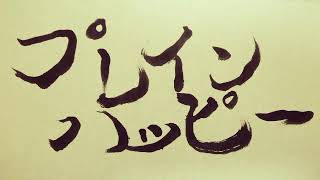 プレイン
ハッピー